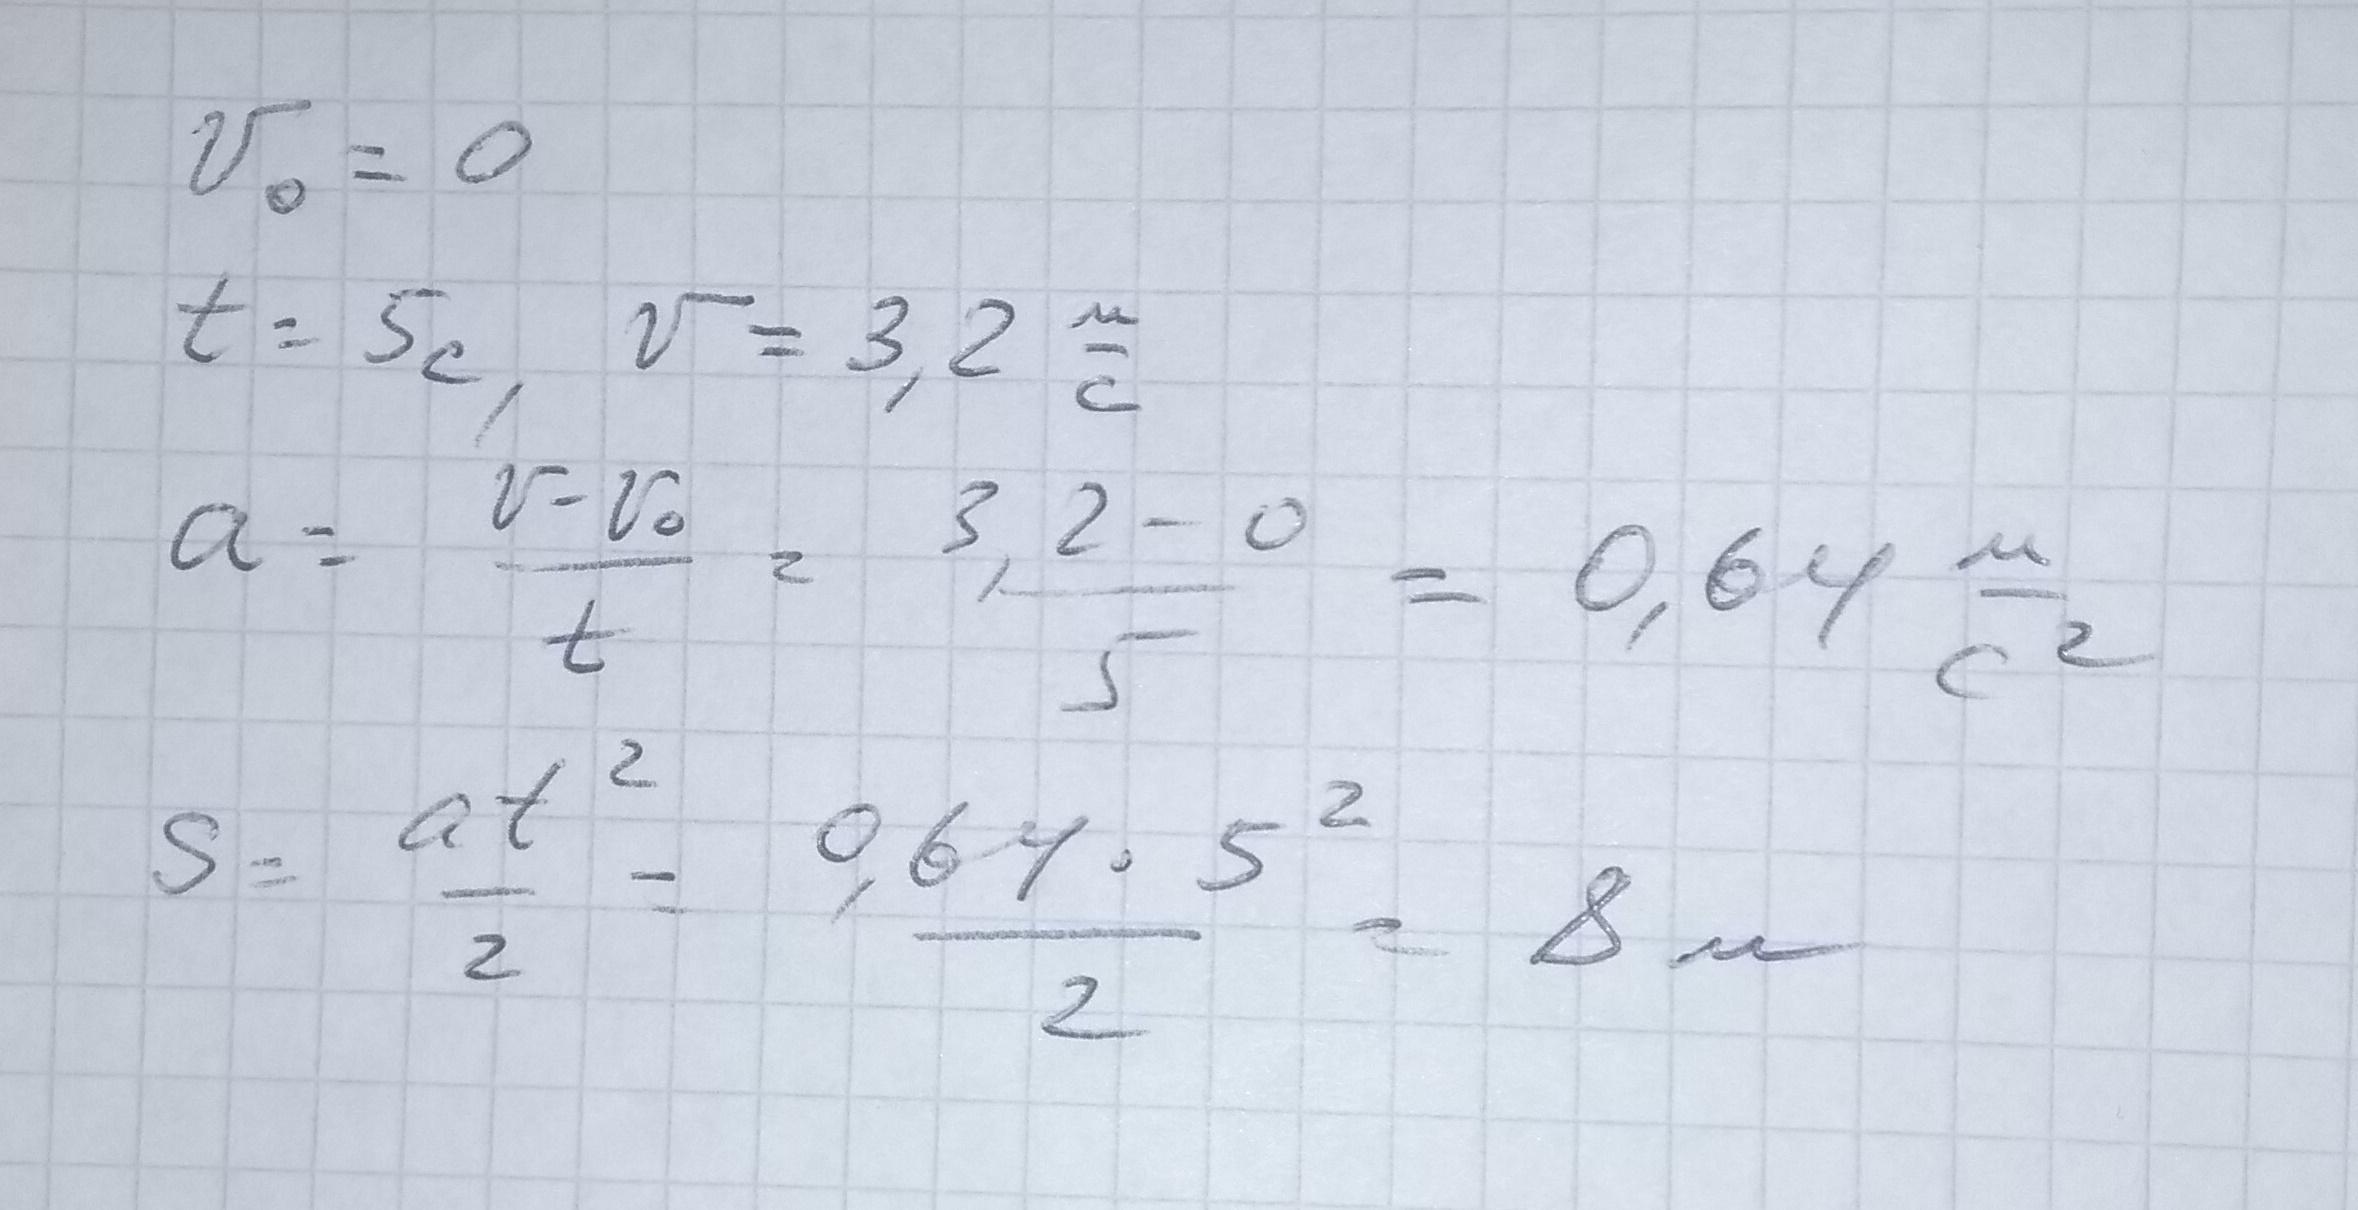 v₀ = 0
t = 5с, v = 3,2 м/с
a = (v - v₀)/t = (3,2 - 0)/5 = 0,64 м/с²
S = at²/2 = (0,64 · 5²)/2 = 8 м